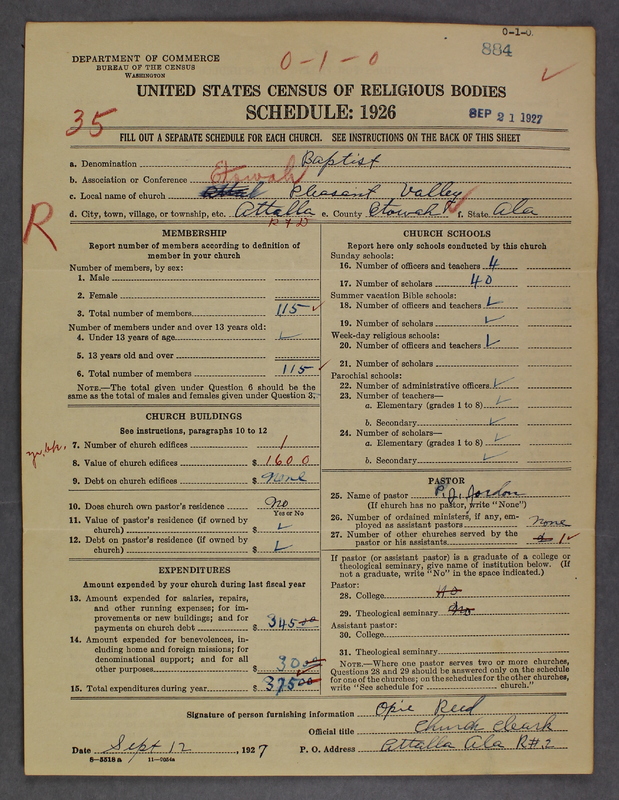 0-1-0.
884
DEPARTMENT OF COMMERCE
BUREAU OF THE CENSUS
WASHINGTON
0-1-0
UNITED STATES CENSUS OF RELIGIOUS BODIES
SCHEDULE: 1926
SEP 21 1927
35
FILL OUT A SEPARATE SCHEDULE FOR EACH CHURCH. SEE INSTRUCTIONS ON THE BACK OF THIS SHEET
a. Denomination Baptist
b. Association or Conference Etowah
c. Local name of church Pleasant Valley
d. City, town, village, or township, etc. Attalla e. County Etowah f. State Ala
R
MEMBERSHIP
Report number of members according to definition of
member in your church
Number of members, by sex:
1. Male
2. Female
3. Total number of members 115
Number of members under and over 13 years old:
4. Under 13 years of age
5. 13 years old and over
6. Total number of members 115
NOTE.—The total given under Question 6 should be the
same as the total of males and females given under Question 3.
CHURCH BUILDINGS
See instructions, paragraphs 10 to 12
7. Number of church edifices 1
8. Value of church edifices $ 1600
9. Debt on church edifices $ None
10. Does church own pastor's residence No
Yes or No
11. Value of pastor's residence (if owned by
church) $
12. Debt on pastor's residence (if owned by
church) $
EXPENDITURES
Amount expended by your church during last fiscal year
13. Amount expended for salaries, repairs,
and other running expenses; for im-
provements or new buildings; and for
payments on church debt $ 345.00
14. Amount expended for benevolences, in-
cluding home and foreign missions; for
denominational support; and for all
other purposes $ 30.00
15. Total expenditures during year $ 375.00
CHURCH SCHOOLS
Report here only schools conducted by this church
Sunday schools:
16. Number of officers and teachers 4
17. Number of scholars 40
Summer vacation Bible schools:
18. Number of officers and teachers
19. Number of scholars
Week-day religious schools:
20. Number of officers and teachers
21. Number of scholars
Parochial schools:
22. Number of administrative officers
23. Number of teachers—
a. Elementary (grades 1 to 8)
b. Secondary
24. Number of scholars—
a. Elementary (grades 1 to 8)
b. Secondary
PASTOR
25. Name of pastor P. J. Jordon
(If church has no pastor, write "None")
26. Number of ordained ministers, if any, em-
ployed as assistant pastors none
27. Number of other churches served by the
pastor or his assistants 1
If pastor (or assistant pastor) is a graduate of a college or
theological seminary, give name of institution below. (If
not a graduate, write "No" in the space indicated.)
Pastor:
28. College No
29. Theological seminary No
Assistant pastor:
30. College
31. Theological seminary
NOTE.—Where one pastor serves two or more churches,
Questions 28 and 29 should be answered only on the schedule
for one of the churches; on the schedules for the other churches,
write "See schedule for church."
Signature of person furnishing information Opie Reed
Official title Church Cleark
Date Sept 12, 1927 P. O. Address Attalla Ala R#.2
8-5518a 11-9034a